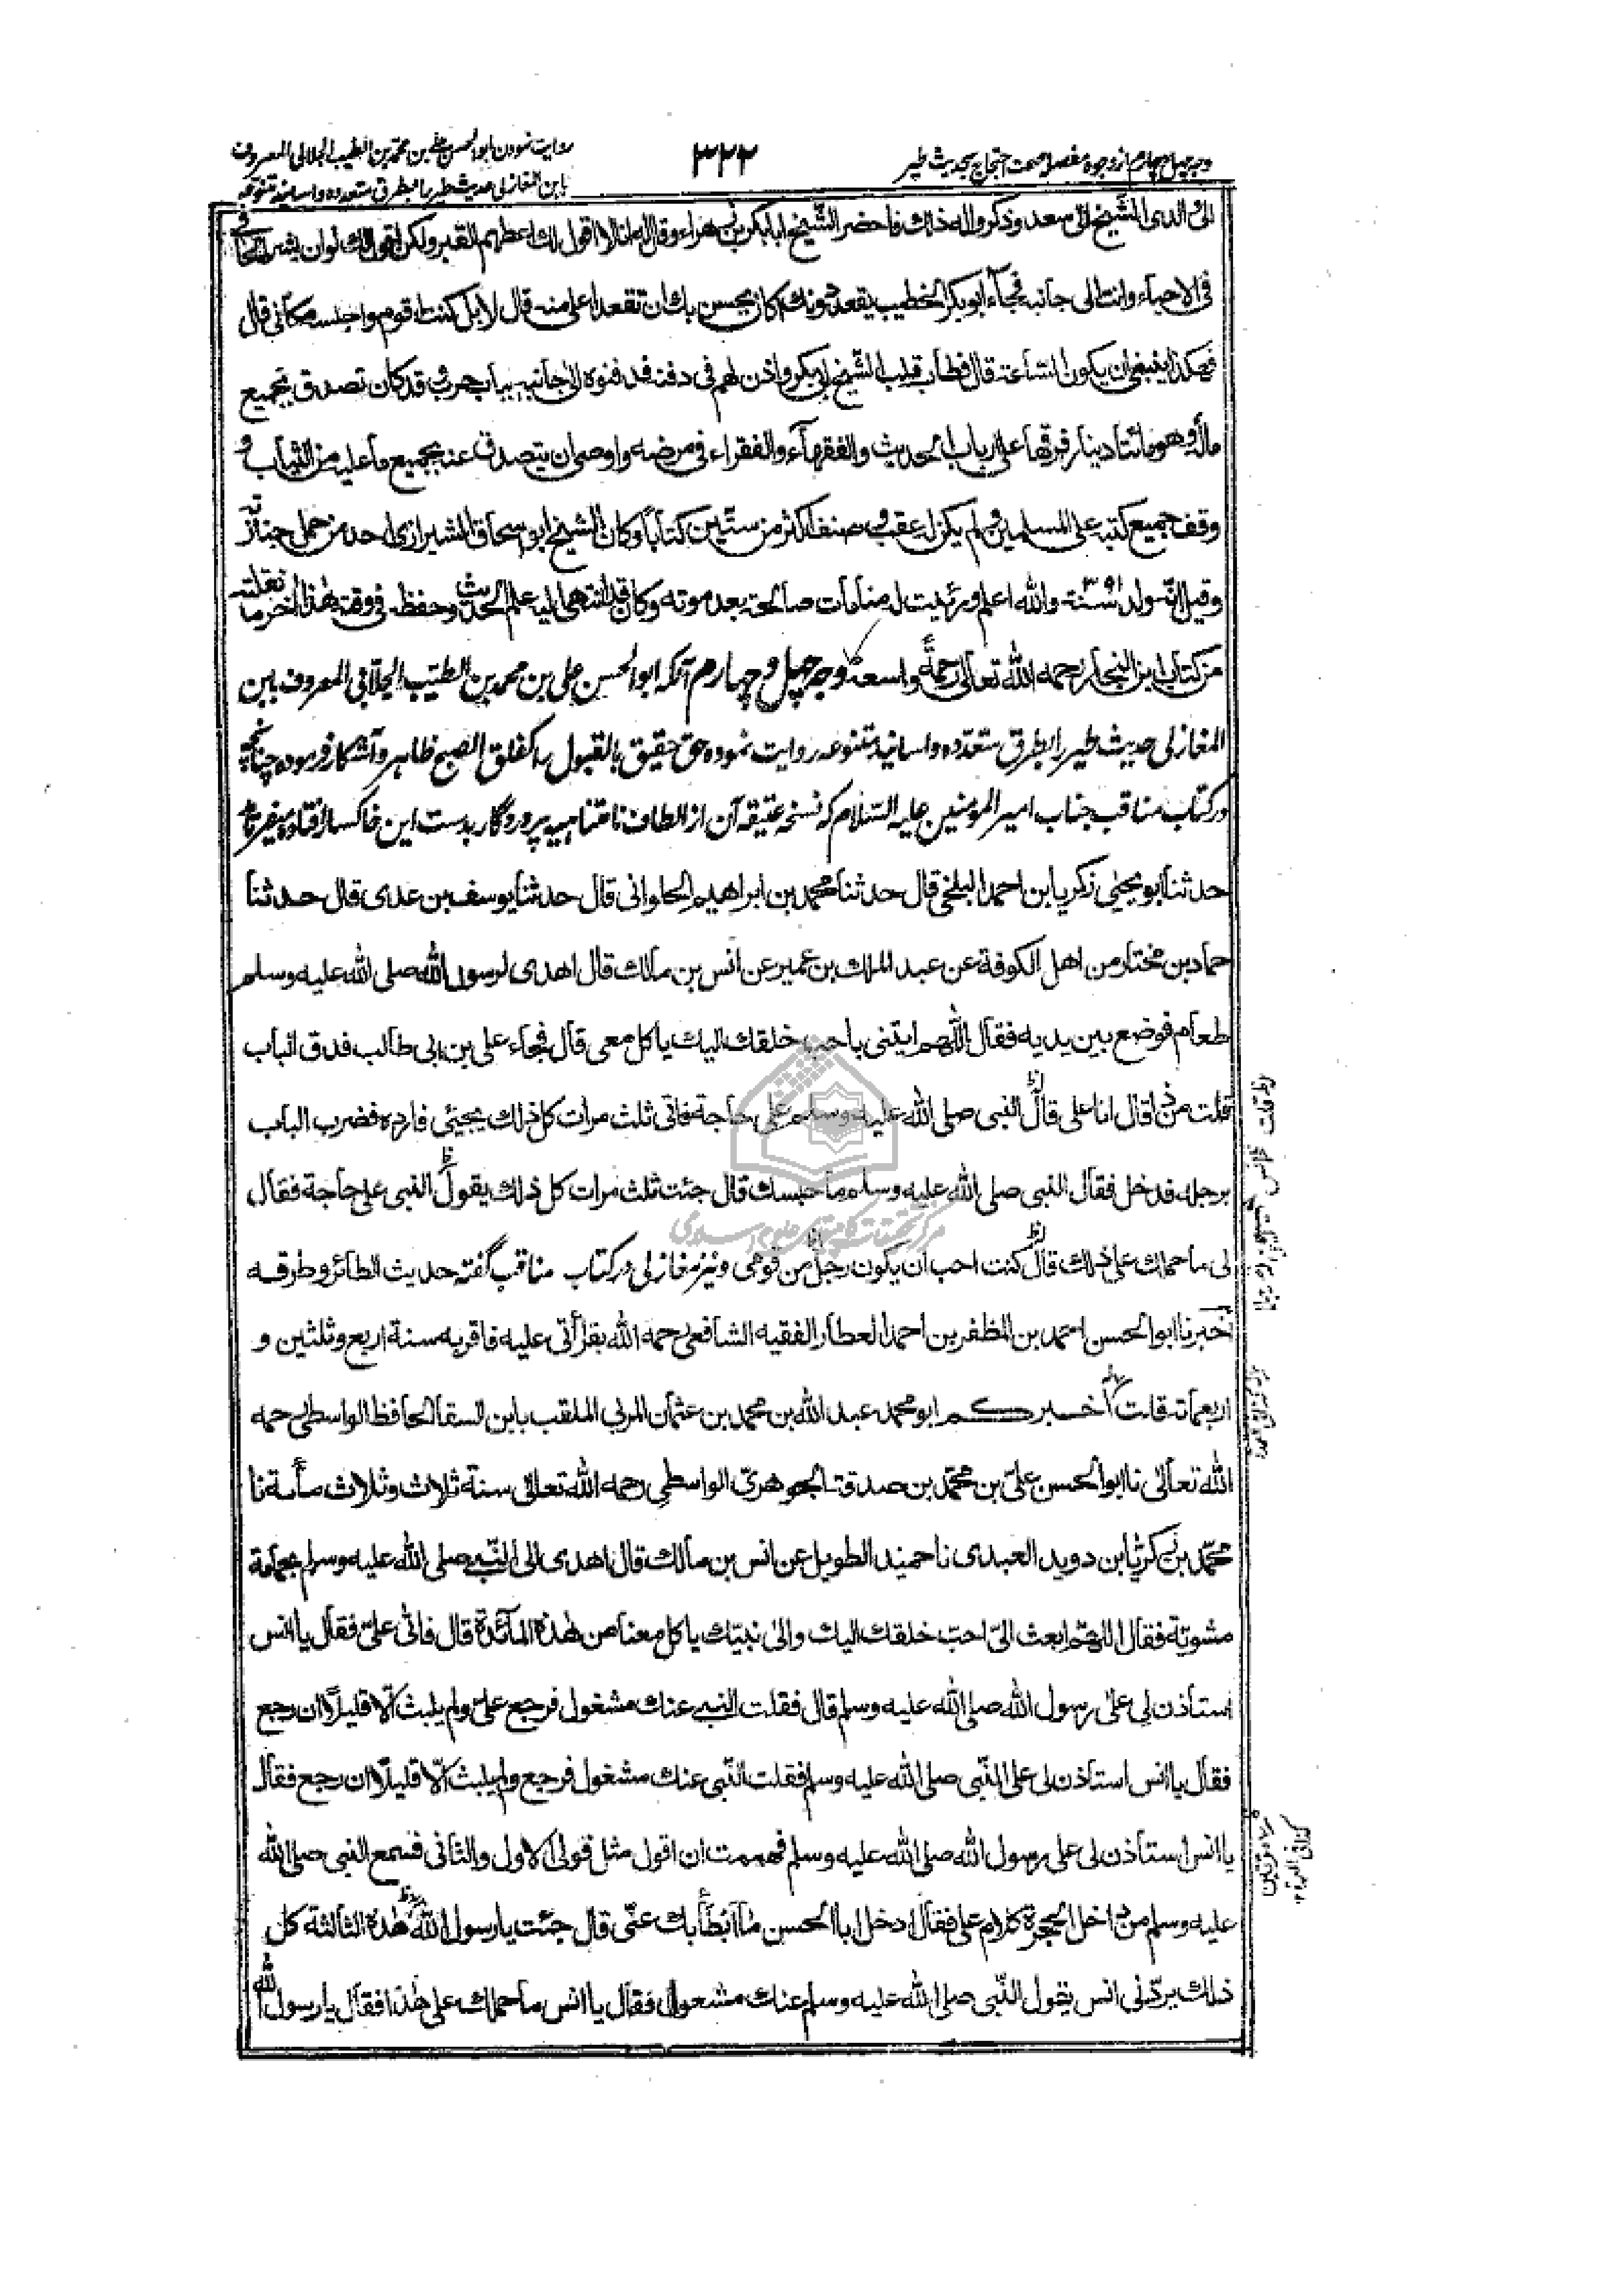 وجه چهل و چهارم از وجوه مفصله صحت احتجاج بحدیث طیر
۳۲۲
روایت نمودن ابو الحسن علی بن محمد بن الطیب الجلابی المعروف
بابن المغازلی حدیث طیر را بطرق متعدده و اسانید متنوعه
الی والدی الشیخ ابی سعد و ذکروا له ذلک فاحضر الشیخ ابا بکر بن زهراء و قال له انا لا اقول لک اعطهم القبر ولکن اقول لک لو ان بشر الحافی
فی الاحیاء و انت الی جانبه فجاء ابو بکر الخطیب یقعد دونک کان یحسن بک ان تقعد اعلی منه قال لا بل کنت اقوم و اجلسه مکانی قال
فهکذا ینبغی ان یکون الساعة قال فطاب قلب الشیخ ابی بکر و اذن لهم فی دفنه فدفنوه الی جانبه بباب حرب و قد کان تصدق بجمیع
ماله و هو مائتا دینار فرقها علی ارباب الحدیث و الفقهاء و الفقراء فی مرضه و اوصی ان یتصدق عنه بجمیع ما علیه من الثیاب و
وقف جمیع کتبه علی المسلمین و لم یکن له عقب و صنف اکثر من ستین کتابا و کان الشیخ ابو اسحاق الشیرازی احد من حمل جنازته
و قیل انه ولد سنة ۳۹۱ و الله اعلم و رئیت له منامات صالحة بعد موته و کان قد انتهی الیه علم الحدیث و حفظه فی وقته هذا اخر ما نقلته
من کتاب ابن النجار رحمه الله تعالی رحمة واسعة وجه چهل و چهارم آنکه ابو الحسن علی بن محمد بن الطیب الجلابی المعروف بابن
المغازلی حدیث طیر را بطرق متعدده و اسانید متنوعه روایت نموده حق حقیق بالقبول را کفلق الصبح ظاهر و آشکار فرموده چنانچه
در کتاب مناقب جناب امیر المومنین علیه السلام که نسخه عتیقه آن از الطاف نامتناهیه پروردگار بدست این خاکسار افتاده میفرماید
حدثنا ابو یحیی زکریا بن احمد البلخی قال حدثنا محمد بن ابراهیم الحلوانی قال حدثنا یوسف بن عدی قال حدثنا
حماد بن مختار من اهل الکوفة عن عبد الملک بن عمیر عن انس بن مالک قال اهدی لرسول الله صلی الله علیه وسلم
طعام فوضع بین یدیه فقال اللهم ایتنی باحب خلقک الیک یاکل معی قال فجاء علی بن ابی طالب فدق الباب
قلت من ذا قال انا علی قال النبی صلی الله علیه وسلم علی حاجة فاتی ثلث مرات کل ذلک یجیئ فارده فضرب الباب
برجله فدخل فقال النبی صلی الله علیه وسلم ما حبسک قال جئت ثلث مرات کل ذلک یقول النبی علی حاجة فقال
لی ما حملک علی ذلک قال کنت احب ان یکون رجل من قومی و نیز مغازلی در کتاب مناقب گفته حدیث الطائر و طرقه
اخبرنا ابو الحسن احمد بن المظفر بن احمد العطار الفقیه الشافعی رحمه الله بقرأتی علیه فاقر به سنة اربع و ثلثین و
اربعمائة قلت اخبرکم ابو محمد عبد الله بن محمد بن عثمان المزنی الملقب بابن السقا الحافظ الواسطی رحمه
الله تعالی نا ابو الحسن علی بن محمد بن صدقة الجوهری الواسطی رحمه الله تعالی سنة ثلاث و ثلاث مائة نا
محمد بن زکریا بن دوید العبدی نا حمید الطویل عن انس بن مالک قال اهدی الی النبی صلی الله علیه وسلم نحامة
مشویة فقال اللهم ابعث الی احب خلقک الیک و الی نبیک یاکل معنا من هذه المائدة قال فاتی علی فقال یا انس
استاذن لی علی رسول الله صلی الله علیه وسلم قال فقلت النبی عنک مشغول فرجع علی و لم یلبث الا قلیلا ان رجع
فقال یا انس استاذن لی علی النبی صلی الله علیه وسلم فقلت النبی عنک مشغول فرجع و لم یلبث الا قلیلا ان رجع فقال
یا انس استاذن لی علی رسول الله صلی الله علیه وسلم فهممت ان اقول مثل قولی الاول و الثانی فسمع النبی صلی الله
علیه وسلم من داخل الحجرة کلام علی فقال ادخل ابا الحسن ما ابطأ بک عنی قال جئت یا رسول الله هذه الثالثة کل
ذلک یردنی انس یقول النبی صلی الله علیه وسلم عنک مشغول فقال یا انس ما حملک علی هذا فقال یا رسول الله
مرکز تحقیقات کامپیوتری علوم اسلامی